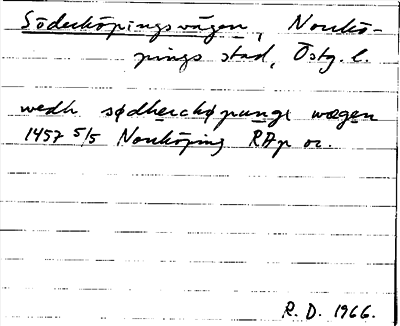 Söderköpingsvägen, Norrkö-
pings stad, Östg. l.
wedh sødherckøpungx wægen
1457 5/5 Norrköping RAp or.
R. D. 1966.